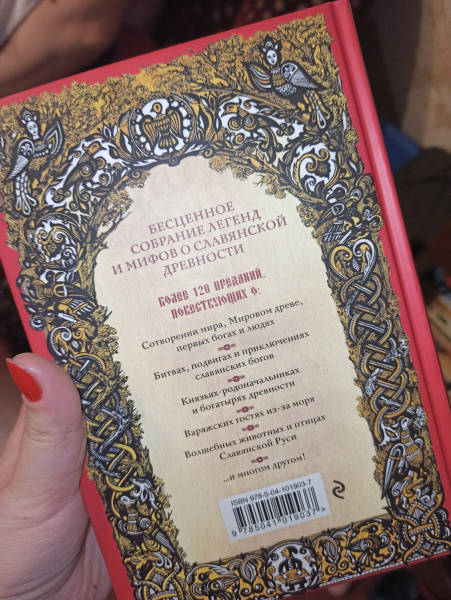 БЕСЦЕННОЕ
СОБРАНИЕ ЛЕГЕНД
И МИФОВ О СЛАВЯНСКОЙ
ДРЕВНОСТИ
Более 120 преданий,
повествующих о:
Сотворении мира, Мировом древе,
первых богах и людях
Битвах, подвигах и приключениях
славянских богов
Князьях-родоначальниках
и богатырях древности
Варяжских гостях из-за моря
Волшебных животных и птицах
Славянской Руси
...и многом другом!
ISBN 978-5-04-101903-7
9 785041 019037